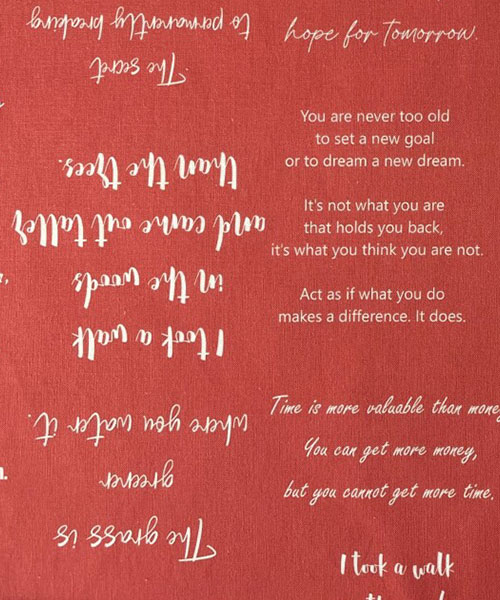 hope for Tomorrow.
You are never too old
to set a new goal
or to dream a new dream.
It's not what you are
that holds you back,
it's what you think you are not.
Act as if what you do
makes a difference. It does.
Time is more valuable than money
You can get more money,
but you cannot get more time.
I took a walk
The grass is
greener
where you water it.
I took a walk
in the woods
and came out taller
than the trees.
The secret
to permanently breaking